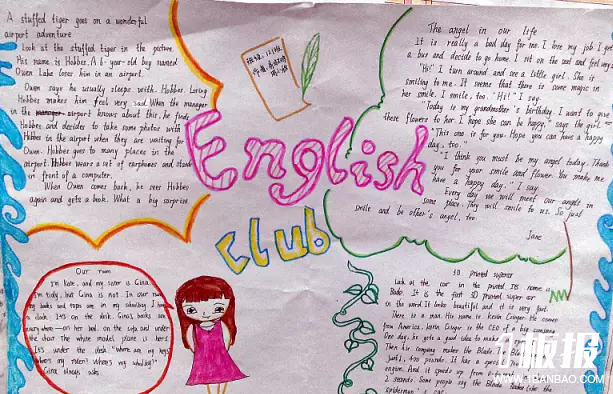 A stuffed tiger goes on a wonderful
airport adventure
Look at the stuffed tiger in the picture.
His name is Hobbes. A 6-year-old boy named
Owen Lake loses him in an airport.
Owen says he usually sleeps with Hobbes. Losing
Hobbes makes him feel very sad. When the manager
in the airport knows about this, he finds
Hobbes and decides to take some photos with
Hobbes in the airport when they are waiting for
Owen. Hobbes goes to many places in the
airport. Hobbes wears a set of earphones and stands
in front of a computer.
When Owen comes back, he sees Hobbes
again and gets a book. What a big surprise
English
Club
The angel in our life
It is really a bad day for me. I lose my job. I get
a bus and decide to go home. I sit on the seat and feel very
"Hi!" I turn around and see a little girl. She is
smiling to me. It seems that there is some magic in
her smile. I smile, too. "Hi!" I say.
"Today is my grandmother's birthday. I want to give
these flowers to her. I hope she can be happy," says the girl.
"This one is for you. Hope you can have a happy
day, too."
"I think you must be my angel today. Thank
you for your smile and flower. You make me
have a happy day." I say.
Every day we will meet our angels in
some place. They will smile to us. So just
smile and be other's angel, too.
Jane
Our room
I'm Kate, and my sister is Gina.
I'm tidy, but Gina is not. In our room
my books and tapes are in the schoolbag. I have
a clock. It's on the desk. Gina's books are
everywhere — on her bed, on the sofa and under
the chair. The white model plane is hers.
It's under the desk. "where are my keys
where's my ruler? where's my
Gina always asks.
3D printed supercar
Look at the car in the picture. Its name
"Blade". It is the first 3D printed super car
in the word. It looks beautiful and it is very fast.
There is a man. His name is Kevin Czinger. He comes
from America. Kevin Czinger is the CEO of a big company.
One day, he gets a good idea to make
Then his company makes the Blade. The Blade
just 1, pounds. It has a
engine. And it speeds up from
2 seconds. Some people say the Blade looks like the
spiderman's car.
板报
WWW.1BANBAO.COM